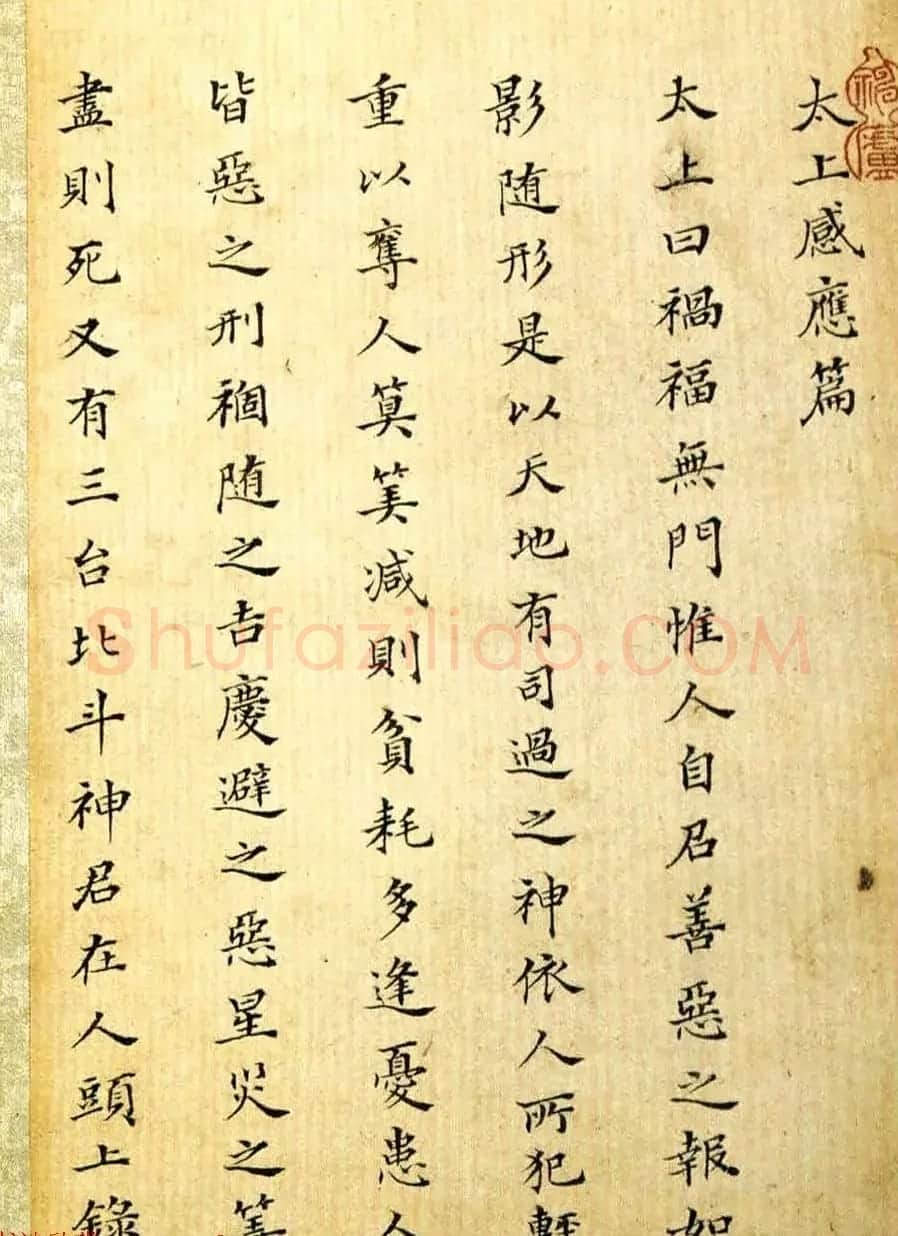 太上感應篇
太上曰禍福無門惟人自召善惡之報如
影随形是以天地有司過之神依人所犯輕
重以奪人筭筭减則貧耗多逢憂患人
皆惡之刑禍随之吉慶避之惡星災之筭
盡則死又有三台北斗神君在人頭上錄
Shufaziliao.COM